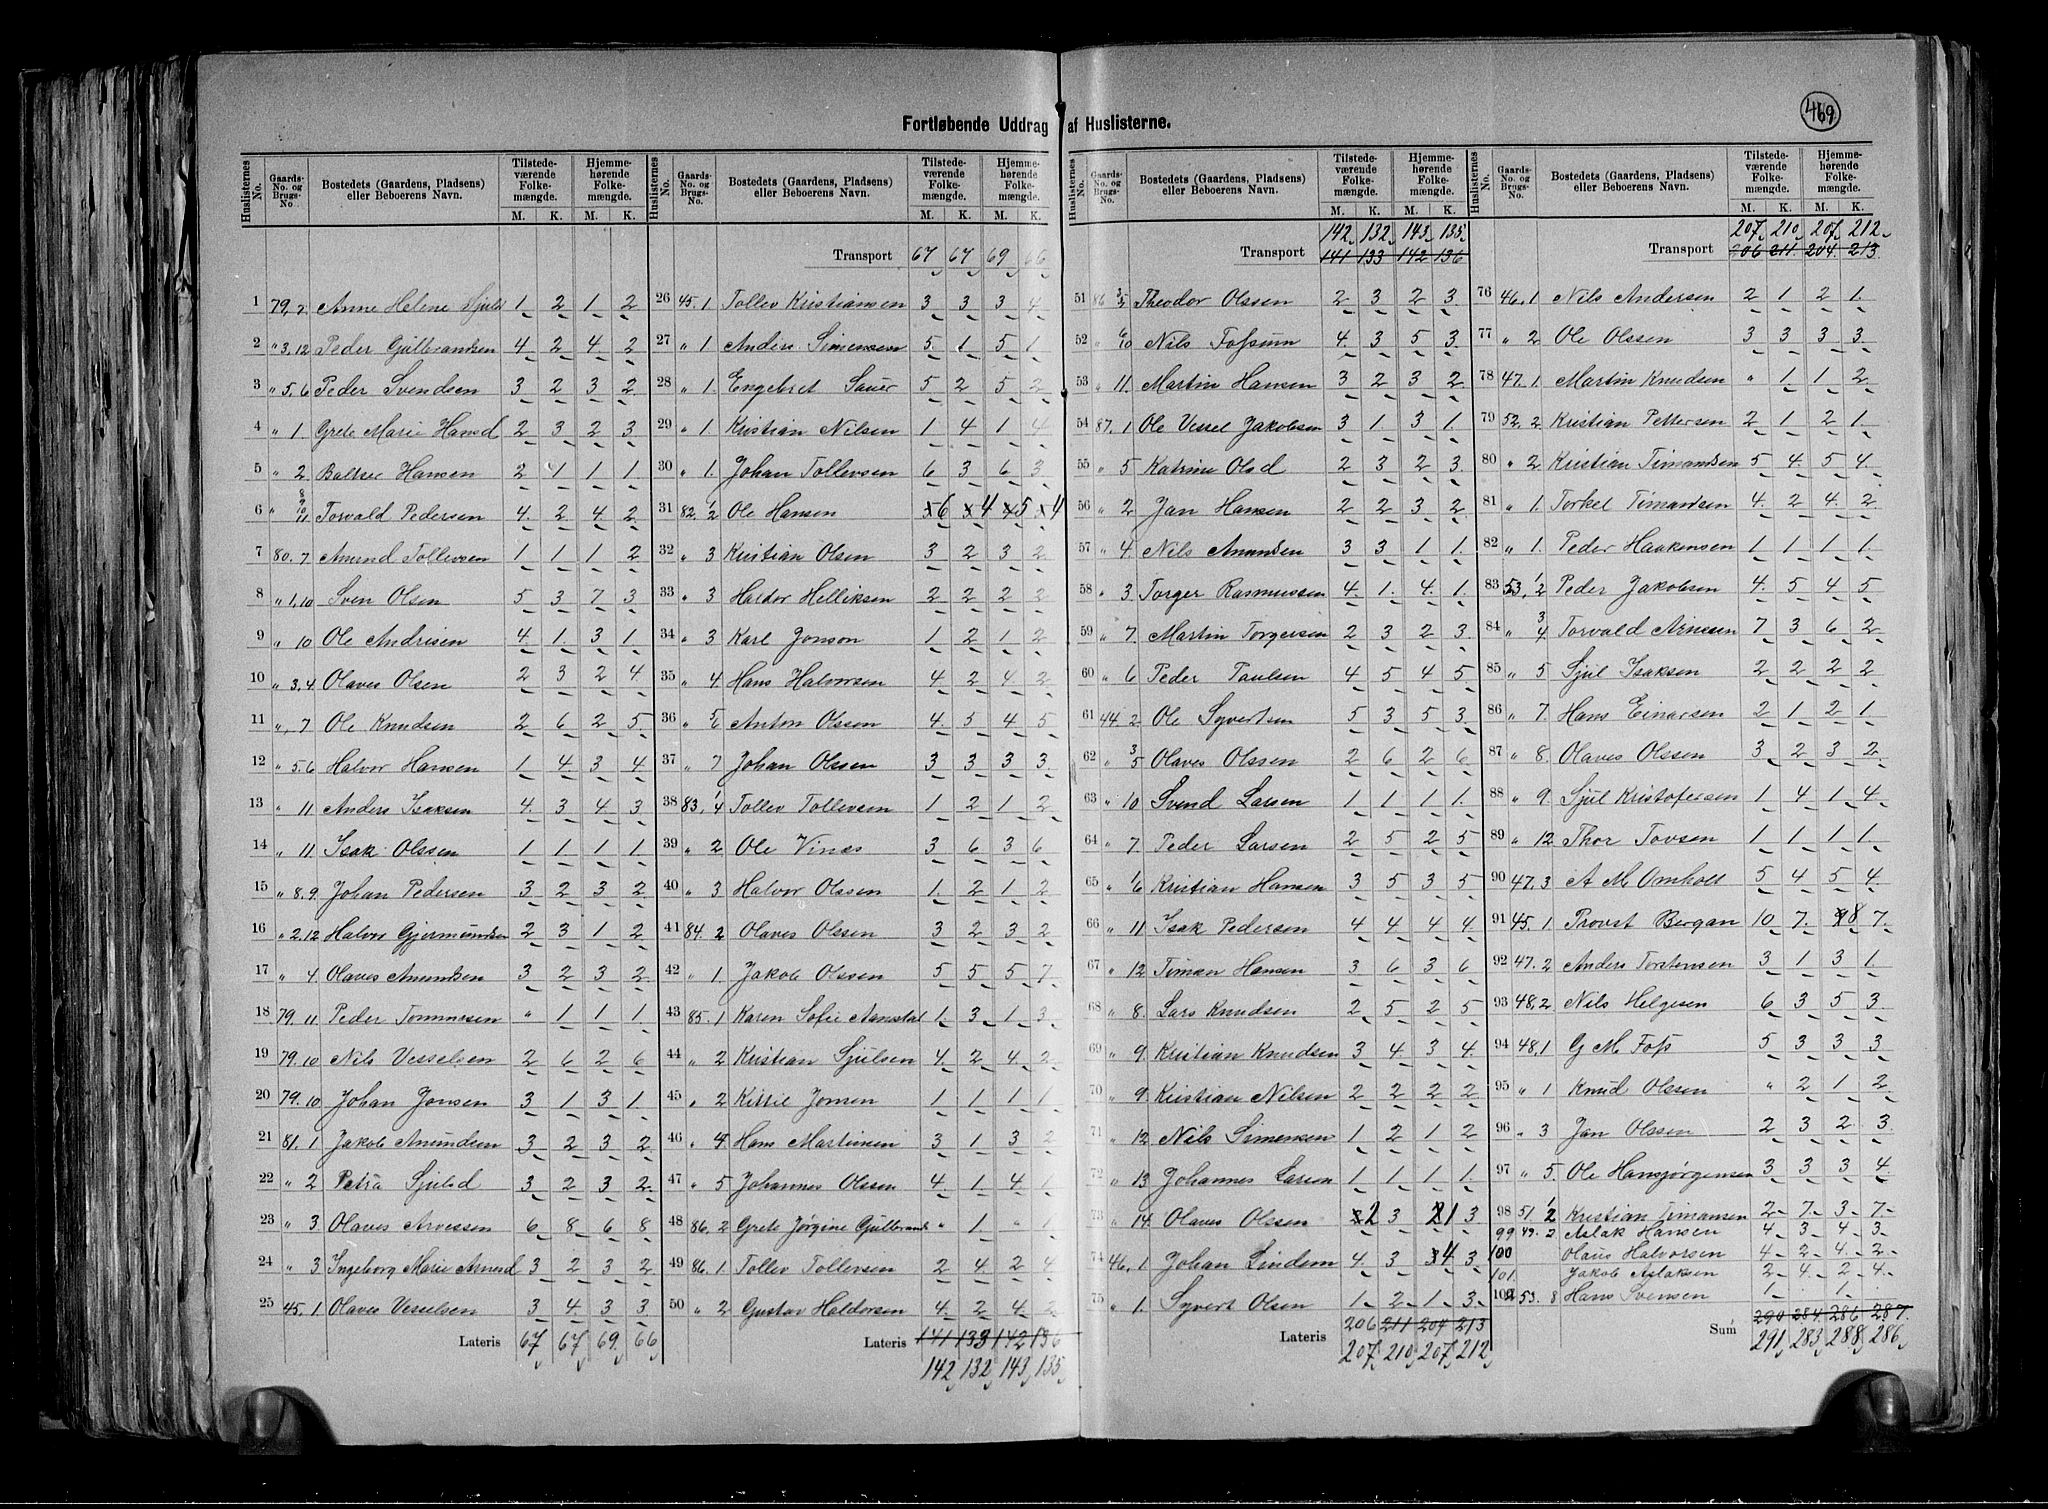 469
Fortløbende Uddrag af Huslisterne.
Huslisternes No. Gaards-No. og Brugs-No. Bostedets (Gaardens, Pladsens) eller Beboerens Navn. Tilstedeværende Folkemængde. M. K. Hjemmehørende Folkemængde. M. K.
1 79,2 Anne Helene Sjulsd 1 2 1 2
2 " 3,12 Peder Gulbrandsen 4 2 4 2
3 " 5,6 Peder Svendsen 3 2 3 2
4 " 1 Grete Marie Hansd 2 3 2 3
5 " 2 Baltser Hansen 2 1 1 1
6 " 8 9 10 11 Torvald Pedersen 4 2 4 2
7 80. 7 Amund Tollevsen 1 1 1 2
8 " 1,10 Sven Olsen 5 3 7 3
9 " 10 Ole Andrisen 4 1 3 1
10 " 3,4 Olaves Olsen 2 3 2 4
11 " 7 Ole Knudsen 2 6 2 5
12 " 5,6 Halvor Hansen 1 4 3 4
13 " 11 Anders Isaksen 4 3 4 3
14 " 11 Isak Olssen 1 1 1 1
15 " 8,9 Johan Pedersen 3 2 3 2
16 " 2,12 Halvor Gjermundsen 2 3 1 2
17 " 4 Olaves Amundsen 3 2 3 2
18 79. 11 Peder Tommesen " 1 1 1
19 79. 10 Nils Vesselsen 2 6 2 6
20 79. 10 Johan Jonsen 3 1 3 1
21 81. 1 Jakob Amundsen 3 2 3 2
22 " 2 Petra Sjulsd 3 2 3 2
23 " 3. Olaves Arvessen 6 8 6 8
24 " 3 Ingeborg Marie Arnesd 3 2 3 2
25 45. 1 Olaves Vesselsen 3 4 3 3
Lateris 67 67 69 66
Huslisternes No. Gaards-No. og Brugs-No. Bostedets (Gaardens, Pladsens) eller Beboerens Navn. Tilstedeværende Folkemængde. M. K. Hjemmehørende Folkemængde. M. K.
Transport 67 67 69 66
26 45. 1 Tollev Kristiansen 3 3 3 4
27 " 1 Anders Simensen 5 1 5 1
28 " 1. Engebret Sauer 5 2 5 2
29 " 1 Kristian Nilsen 1 4 1 4
30 " 1. Johan Tollevsen 6 3 6 3
31 82. 1/2 Ole Hansen 6 4 5 4
32 " 3 Kristian Olsen 3 2 3 2
33 " 3 Haldor Helliksen 2 2 2 2
34 " 3 Karl Jonson 1 2 1 2
35 " 4 Hans Halvorsen 4 2 4 2
36 " 5/6 Anton Olssen 4 5 4 5
37 " 7 Johan Olssen 3 3 3 3
38 83, 1/4 Tollev Tollevsen 1 2 1 2
39 " 2 Ole Vines 3 6 3 6
40 " 3 Halvor Olssen 1 2 1 2
41 84. 2 Olaves Olssen 3 2 3 2
42 " 1. Jakob Olssen 5 5 5 7
43 85. 1 Karen Sofie Aanestal 1 3 1 3
44 " 2 Kristian Sjulsen 4 2 4 2
45 " 2 Kittil Jonsen 1 1 1 1
46 " 4 Hans Martinsen 3 1 3 2
47 " 5 Johannes Olssen 4 1 4 1
48 86. 2 Grete Jørgine Gulbrands " 1 " 1
49 86. 1 Tollev Tollevsen 2 4 2 4
50 " 2 Gustav Haldorsen 4 2 4 2
Lateris 141 133 142 136
142 132 143 135
Huslisternes No. Gaards-No. og Brugs-No. Bostedets (Gaardens, Pladsens) eller Beboerens Navn. Tilstedeværende Folkemængde. M. K. Hjemmehørende Folkemængde. M. K.
142 132 143 135
Transport 141 133 142 136
51 86 3/5 Theodor Olssen 2 3 2 3
52 " 6/10 Nils Fossum 4 3 5 3
53 " 11. Martin Hansen 3 2 3 2
54 87. 1 Ole Vessel Jakobsen 3 1 3 1
55 " 5 Katrine Olsd 2 3 2 3
56 " 2 Jan Hansen 2 2 3 2
57 " 4. Nils Amundsen 3 3 1 1
58 " 3 Torger Rasmussen 4 1 4 1
59 " 7. Martin Torgersen 2 3 2 3
60 " 6 Peder Paulsen 4 5 4 5
61 44. 2 Ole Syvertsen 5 3 5 3
62 " 3/5 Olaves Olssen 2 6 2 6
63 " 10 Svend Larsen 1 1 1 1
64 " 7. Peder Larsen 2 5 2 5
65 " 1/6 Kristian Hansen 3 5 3 5
66 " 11 Isak Pedersen 4 4 4 4
67 " 12 Timan Hansen 3 6 3 6
68 " 8. Lars Knudsen 2 5 2 5
69 " 9. Kristian Knudsen 3 4 3 4
70 " 9. Kristian Nilsen 2 2 2 2
71 " 12 Nils Simensen 1 2 1 2
72 " 13 Johannes Larsen 1 1 1 1
73 " 14. Olaves Olssen 2 3 1 3
74 46, 1 Johan Lindem 4 3 4 3
75 " 1. Syvert Olsen 1 2 1 3
Lateris 206 211 204 213
207 210 207 212
Huslisternes No. Gaards-No. og Brugs-No. Bostedets (Gaardens, Pladsens) eller Beboerens Navn. Tilstedeværende Folkemængde. M. K. Hjemmehørende Folkemængde. M. K.
207 210 207 212
Transport 206 211 204 213
76 46. 1 Nils Andersen 2 1 2 1
77 " 2 Ole Olssen 3 3 3 3
78 47. 1 Martin Knudsen " 1 1 2
79 52. 2 Kristian Pettersen 2 1 2 1
80 " 2 Kristian Timandsen 5 4 5 4
81 " 1. Torkel Timandsen 4 2 4 2
82 " 1. Peder Haakensen 1 1 1 1
83 53, 1/2 Peder Jakobsen 4 5 4 5
84 " 3/4 Torvald Arnesen 7 3 6 2
85 " 5 Sjul Isaksen 2 2 2 2
86 " 7. Hans Einarsen 2 1 2 1
87 " 8. Olaves Olssen 3 2 3 2
88 " 9 Sjul Kristofersen 1 4 1 4
89 " 12 Thor Tovsen 1 1 1 1
90 47. 3 A M Omholt 5 4 5 4
91 45. 1 Provst Bergan 10 7 8 7
92 47. 2 Anders Torstensen 3 1 3 1
93 48, 2 Nils Helgesen 6 3 5 3
94 48, 1 G M Foss 5 3 3 3
95 " 1 Knud Olssen " 2 1 2
96 " 3 Jan Olssen 2 3 2 3
97 " 5 Ole Hansjørgensen 3 3 3 4
98 51. 1/2 Kristian Timansen 2 7 3 7
99 49. 2 Aslak Hansen 4 3 4 3
100 Olaus Halvorsen 4 2 4 2
101. Jakob Aslaksen 2 4 2 4
102 53. 8 Hans Svensen 1 - 1 -
290 284 286 287
Sum 291 283 288 286